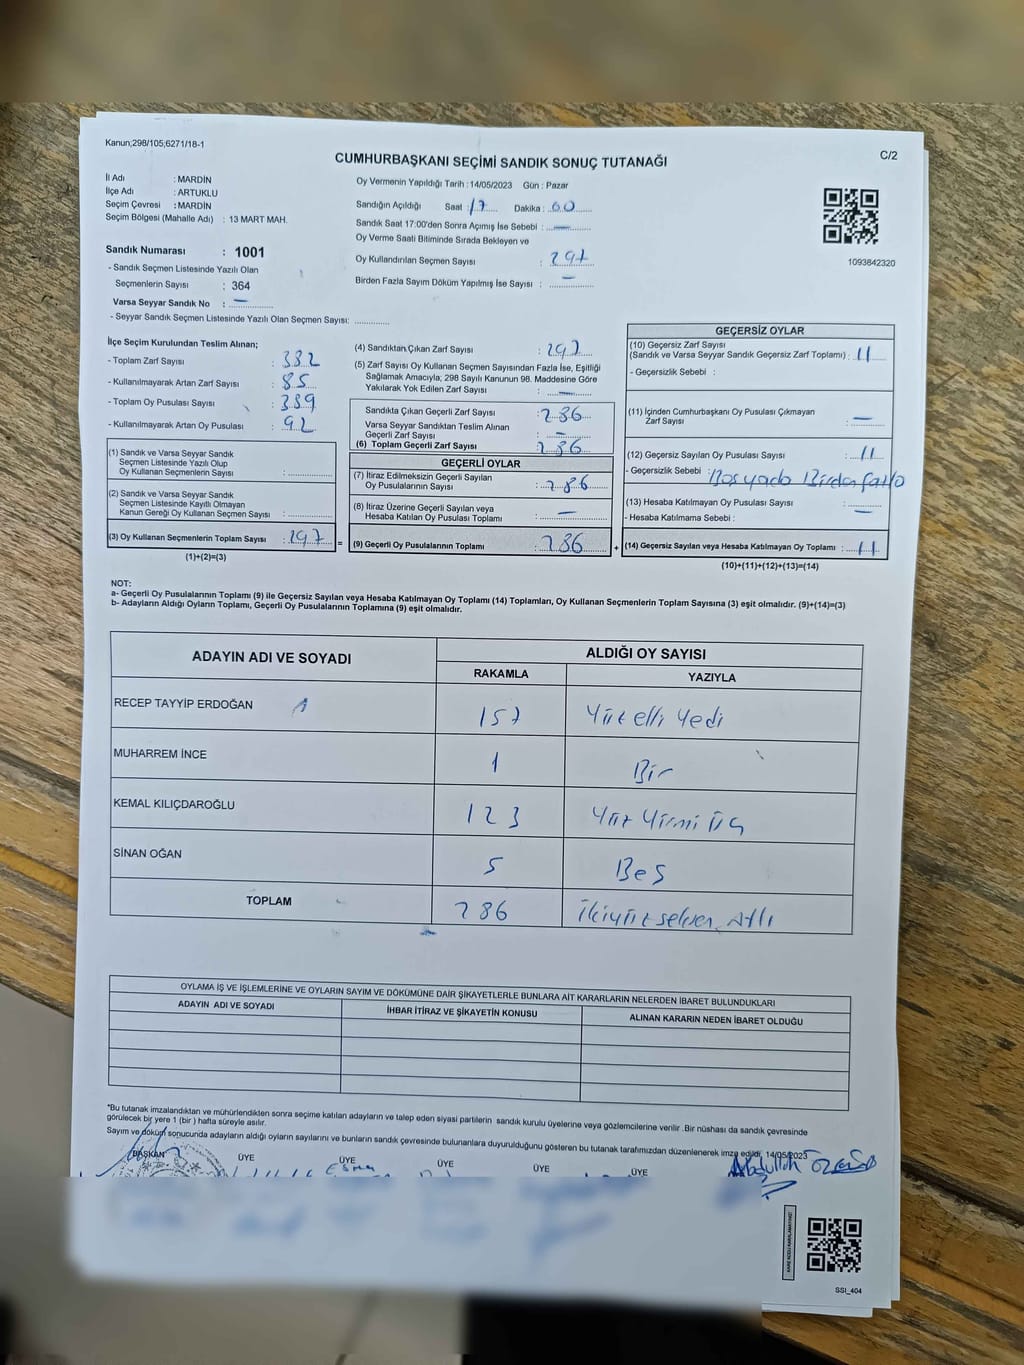 Kanun;298/105;6271/18-1
C/2
CUMHURBAŞKANI SEÇİMİ SANDIK SONUÇ TUTANAĞI
İl Adı : MARDİN
İlçe Adı : ARTUKLU
Seçim Çevresi : MARDİN
Seçim Bölgesi (Mahalle Adı) : 13 MART MAH.
Sandık Numarası : 1001
- Sandık Seçmen Listesinde Yazılı Olan
Seçmenlerin Sayısı : 364
Varsa Seyyar Sandık No : —
- Seyyar Sandık Seçmen Listesinde Yazılı Olan Seçmen Sayısı:
Oy Vermenin Yapıldığı Tarih : 14/05/2023 Gün : Pazar
Sandığın Açıldığı Saat : 17 Dakika : 00
Sandık Saat 17:00'den Sonra Açımış İse Sebebi : —
Oy Verme Saati Bitiminde Sırada Bekleyen ve
Oy Kullandırılan Seçmen Sayısı : 297
Birden Fazla Sayım Döküm Yapılmış İse Sayısı : —
1093842320
İlçe Seçim Kurulundan Teslim Alınan;
- Toplam Zarf Sayısı : 382
- Kullanılmayarak Artan Zarf Sayısı : 85
- Toplam Oy Pusulası Sayısı : 389
- Kullanılmayarak Artan Oy Pusulası : 92
(1) Sandık ve Varsa Seyyar Sandık
Seçmen Listesinde Yazılı Olup
Oy Kullanan Seçmenlerin Sayısı :
(2) Sandık ve Varsa Seyyar Sandık
Seçmen Listesinde Kayıtlı Olmayan
Kanun Gereği Oy Kullanan Seçmen Sayısı :
(3) Oy Kullanan Seçmenlerin Toplam Sayısı : 297 =
(1)+(2)=(3)
(4) Sandıktan Çıkan Zarf Sayısı : 297
(5) Zarf Sayısı Oy Kullanan Seçmen Sayısından Fazla İse, Eşitliği
Sağlamak Amacıyla; 298 Sayılı Kanunun 98. Maddesine Göre
Yakılarak Yok Edilen Zarf Sayısı : —
Sandıkta Çıkan Geçerli Zarf Sayısı : 286
Varsa Seyyar Sandıktan Teslim Alınan
Geçerli Zarf Sayısı : —
(6) Toplam Geçerli Zarf Sayısı : 286
GEÇERLİ OYLAR
(7) İtiraz Edilmeksizin Geçerli Sayılan
Oy Pusulalarının Sayısı : 286
(8) İtiraz Üzerine Geçerli Sayılan veya
Hesaba Katılan Oy Pusulası Toplamı : —
(9) Geçerli Oy Pusulalarının Toplamı : 286 +
GEÇERSİZ OYLAR
(10) Geçersiz Zarf Sayısı
(Sandık ve Varsa Seyyar Sandık Geçersiz Zarf Toplamı) : 11
- Geçersizlik Sebebi :
(11) İçinden Cumhurbaşkanı Oy Pusulası Çıkmayan
Zarf Sayısı : —
(12) Geçersiz Sayılan Oy Pusulası Sayısı : 11
- Geçersizlik Sebebi : Boş yada Birden fazla
(13) Hesaba Katılmayan Oy Pusulası Sayısı : —
- Hesaba Katılmama Sebebi :
(14) Geçersiz Sayılan veya Hesaba Katılmayan Oy Toplamı : 11
(10)+(11)+(12)+(13)=(14)
NOT:
a- Geçerli Oy Pusulalarının Toplamı (9) ile Geçersiz Sayılan veya Hesaba Katılmayan Oy Toplamı (14) Toplamları, Oy Kullanan Seçmenlerin Toplam Sayısına (3) eşit olmalıdır. (9)+(14)=(3)
b- Adayların Aldığı Oyların Toplamı, Geçerli Oy Pusulalarının Toplamına (9) eşit olmalıdır.
ADAYIN ADI VE SOYADI ALDIĞI OY SAYISI
RAKAMLA YAZIYLA
RECEP TAYYİP ERDOĞAN 157 Yüz elli Yedi
MUHARREM İNCE 1 Bir
KEMAL KILIÇDAROĞLU 123 Yüz Yirmi Üç
SİNAN OĞAN 5 Beş
TOPLAM 286 İkiyüz seksen Altı
OYLAMA İŞ VE İŞLEMLERİNE VE OYLARIN SAYIM VE DÖKÜMÜNE DAİR ŞİKAYETLERLE BUNLARA AİT KARARLARIN NELERDEN İBARET BULUNDUKLARI
ADAYIN ADI VE SOYADI İHBAR İTİRAZ VE ŞİKAYETİN KONUSU ALINAN KARARIN NEDEN İBARET OLDUĞU
*Bu tutanak imzalandıktan ve mühürlendikten sonra seçime katılan adayların ve talep eden siyasi partilerin sandık kurulu üyelerine veya gözlemcilerine verilir .Bir nüshası da sandık çevresinde
görülecek bir yere 1 (bir ) hafta süreyle asılır.
Sayım ve döküm sonucunda adayların aldığı oyların sayılarını ve bunların sandık çevresinde bulunanlara duyurulduğunu gösteren bu tutanak tarafımızdan düzenlenerek imza edildi. 14/05/2023
BAŞKAN ÜYE ÜYE ÜYE ÜYE ÜYE
Esma Abdullah
SSI_404